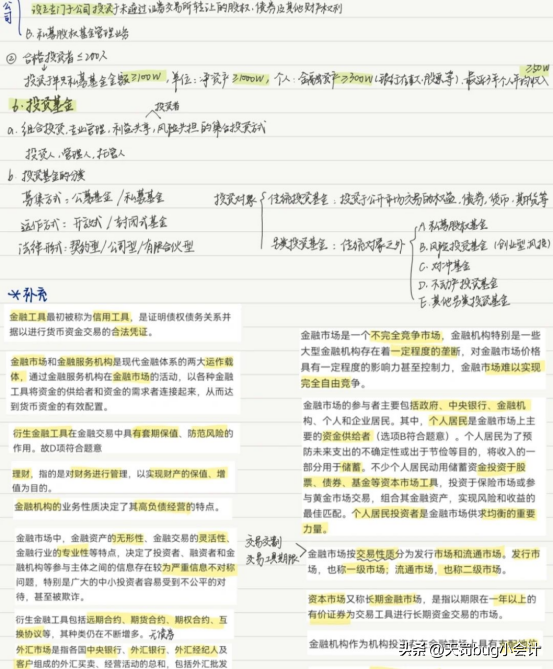 公司
设立专门于公司投资于未通过证券交易所转让的股权,债券及其他财产权利
B. 私募股权基金管理业务
② 合格投资者≤200人
投资于单只私募基金金额≥100W,单位:净资产≥1000W,个人:金融资产≥300W(银行存款、股票等),最近3年个人年均收入≥50W
b. 投资基金
投资者
a. 组合投资、专业管理、利益共享,风险共担的集合投资方式
投资人,管理人,托管人
b 投资基金的分类
募集方式:公募基金/私募基金
运作方式:开放式/封闭式基金
法律形式:契约型/公司型/有限合伙型
投资对象
传统投资基金:投资于公开市场交易的权益,债券,货币,期货等
另类投资基金:传统对象之外
A 私募股权基金
B. 风险投资基金(创业型,风投)
C. 对冲基金
D. 不动产投资基金
E. 其他另类投资基金
*补充
金融工具最初被称为信用工具,是证明债权债务关系并
据以进行货币资金交易的合法凭证。
金融市场和金融服务机构是现代金融体系的两大运作载
体,通过金融服务机构在金融市场的活动,以各种金融
工具将资金的供给者和资金的需求者连接起来,从而达
到货币资金的有效配置。
衍生金融工具在金融交易中具有套期保值、防范风险的
作用。故D项符合题意
理财,指的是对财务进行管理,以实现财产的保值、增
值为目的。
金融机构的业务性质决定了其高负债经营的特点。
金融市场中,金融资产的无形性、金融交易的灵活性、
金融行业的专业性等特点,决定了投资者、融资者和金
融机构等参与主体之间的信息存在较为严重信息不对称
问题,特别是广大的中小投资者容易受到不公平的对
待,甚至被欺诈。
衍生金融工具包括远期合约、期货合约、期权合约、互
换协议等,其种类仍在不断增多。
外汇市场是指各国中央银行、外汇银行、外汇经纪人及
客户组成的外汇买卖、经营活动的总和,包括外汇批发
金融市场是一个不完全竞争市场,金融机构特别是一些
大型金融机构存在着一定程度的垄断,对金融市场价格
具有一定程度的影响力甚至控制力,金融市场难以实现
完全自由竞争。
金融市场的参与者主要包括政府、中央银行、金融机
构、个人和企业居民。其中,个人居民是金融市场上主
要的资金供给者(选项B符合题意)。个人居民为了预
防未来支出的不确定性或出于节俭等目的,将收入的一
部分用于储蓄。不少个人居民动用储蓄资金投资于股
票、债券、基金等资本市场工具,投资于保险市场或参
与黄金市场交易,组合其金融资产,实现风险和收益的
最佳匹配。个人居民投资者是金融市场供求均衡的重要
力量。
金融市场按交易性质分为发行市场和流通市场。发行市
场,也称一级市场;流通市场,也称二级市场。
资本市场又称长期金融市场,是指以期限在一年以上的
有价证券为交易工具进行长期资金交易的市场。
头条 @天哥bug小会计